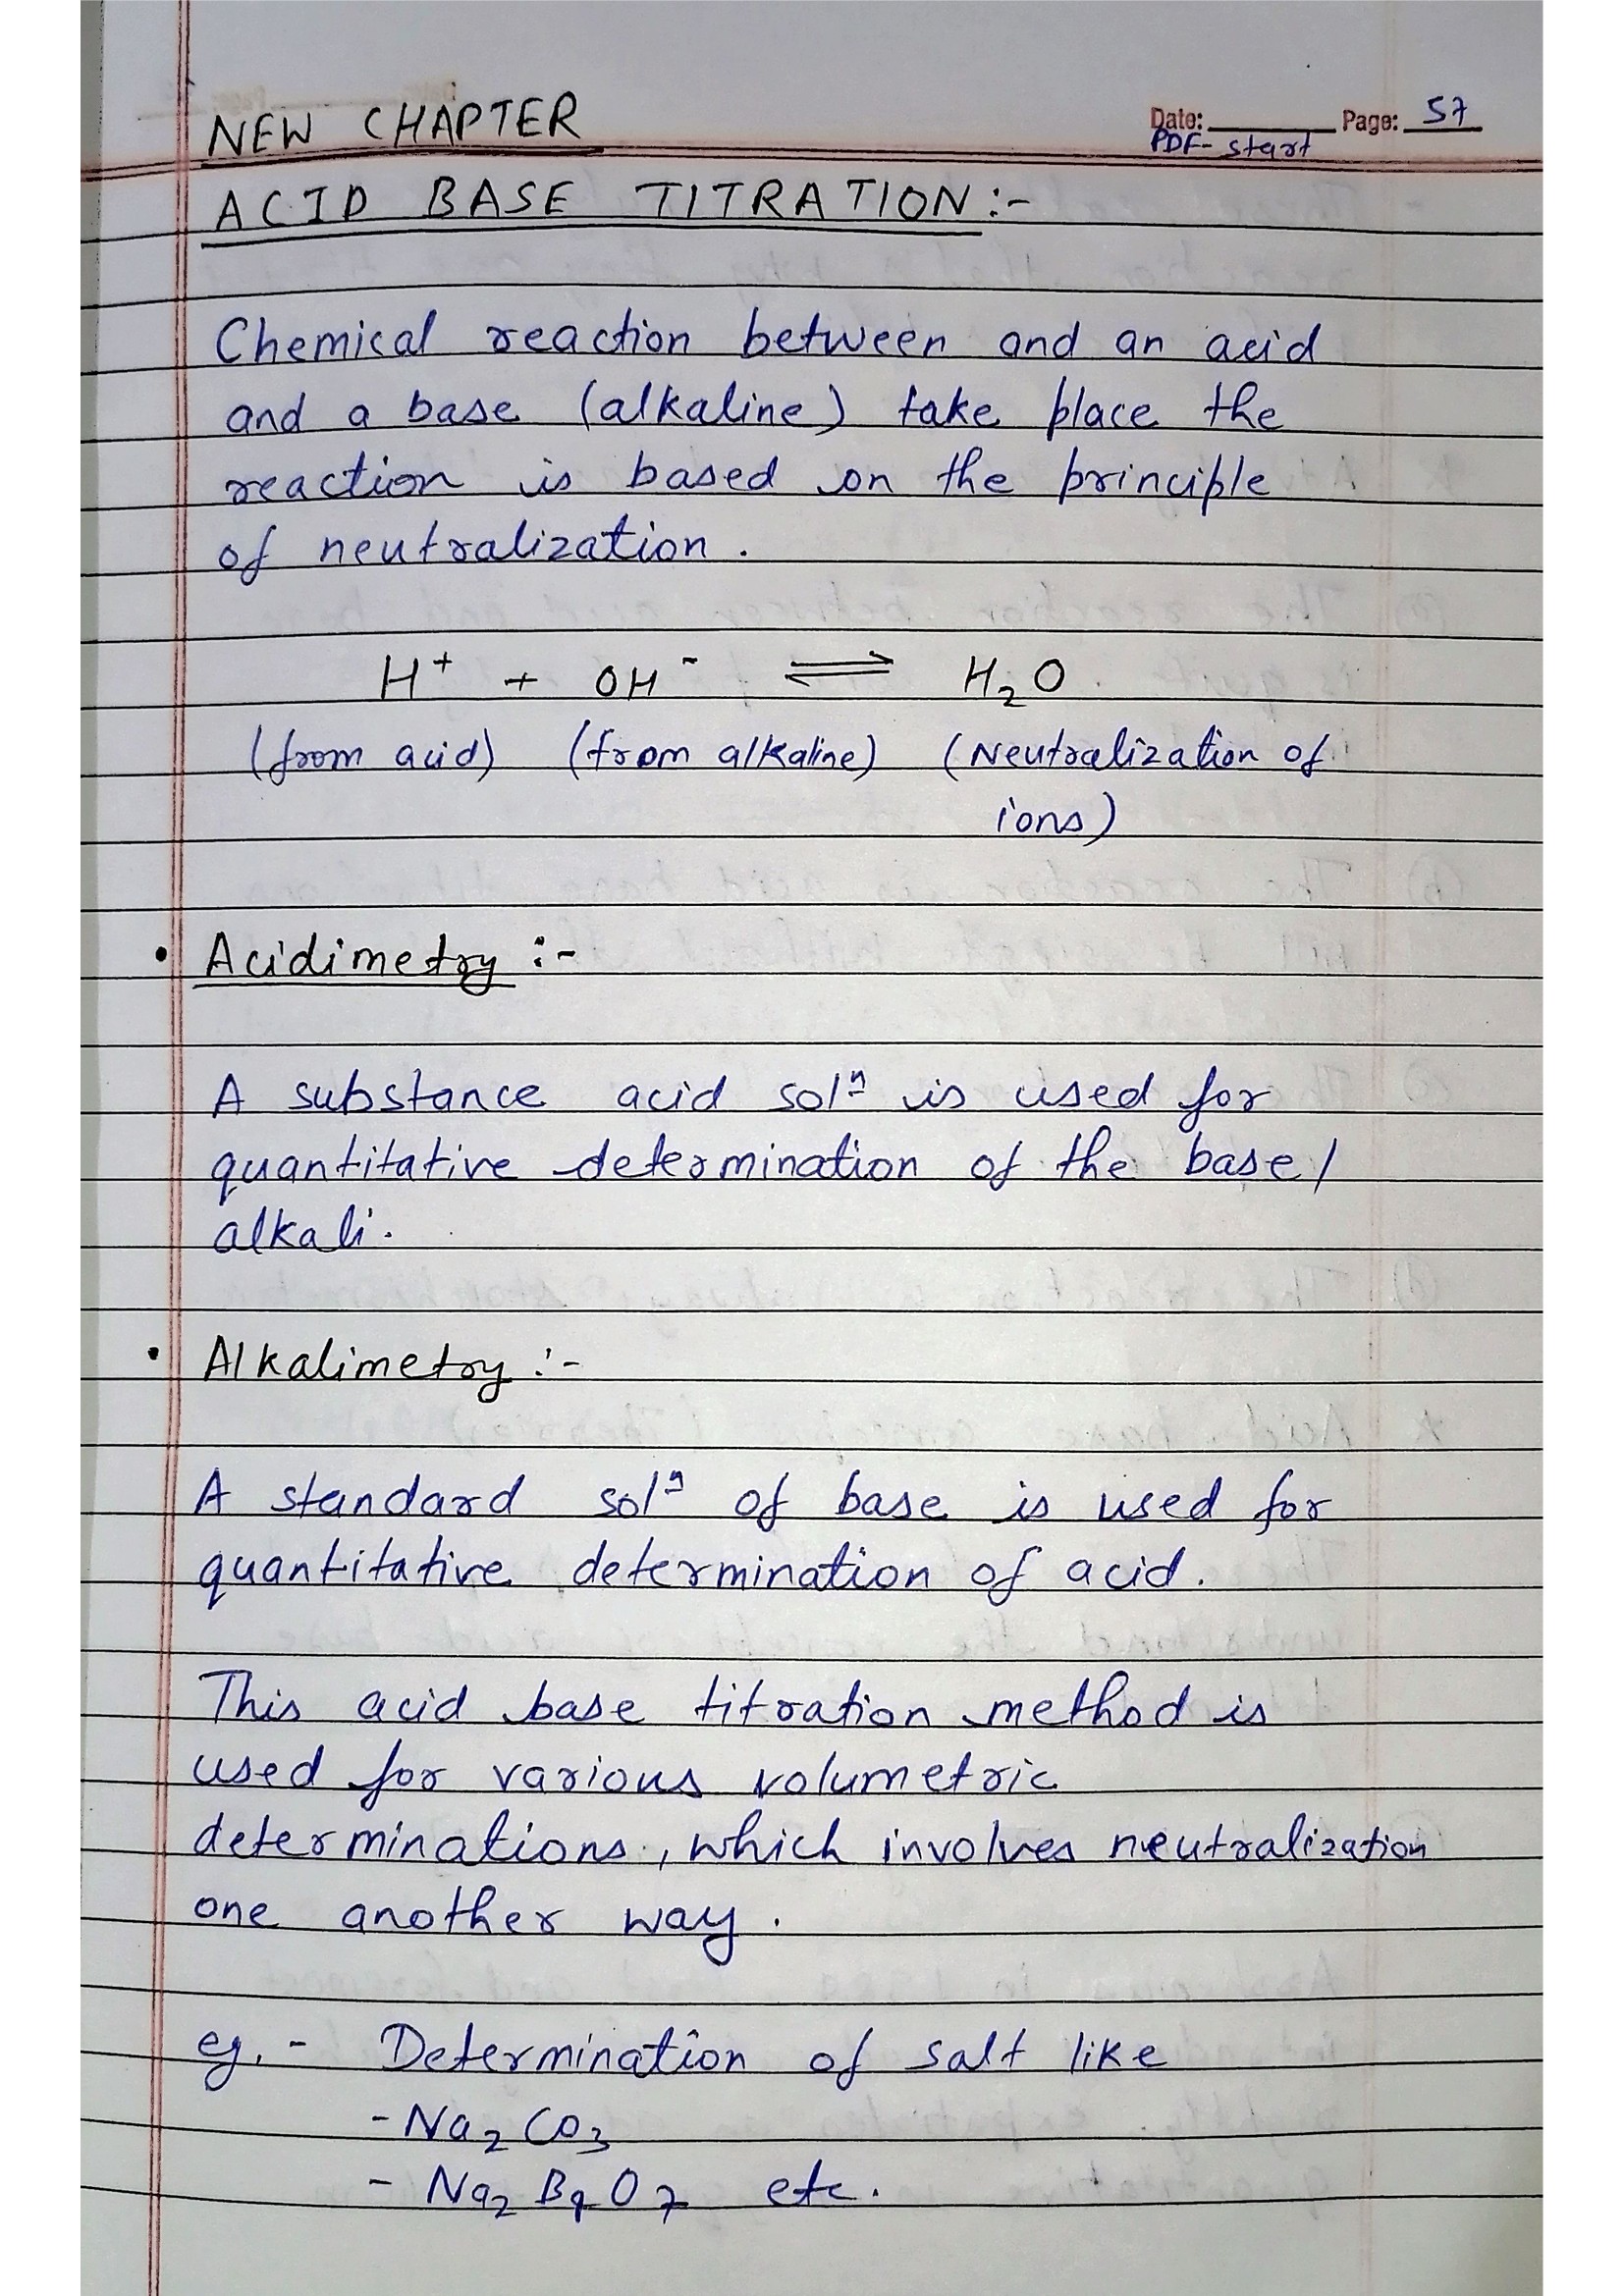 NEW CHAPTER
Date: Page: 57
PDF- start
ACID BASE TITRATION:-
Chemical reaction between and an acid
and a base (alkaline) take place the
reaction is based on the principle
of neutralization.
H⁺ + OH⁻ ⇌ H₂O
(from acid) (from alkaline) (Neutralization of
ions)
• Acidimetry :-
A substance acid solⁿ is used for
quantitative determination of the base/
alkali.
• Alkalimetry :-
A standard solⁿ of base is used for
quantitative determination of acid.
This acid base titration method is
used for various volumetric
determinations, which involves neutralization
one another way.
eg. - Determination of salt like
- Na₂CO₃
- Na₂B₄O₇ etc.